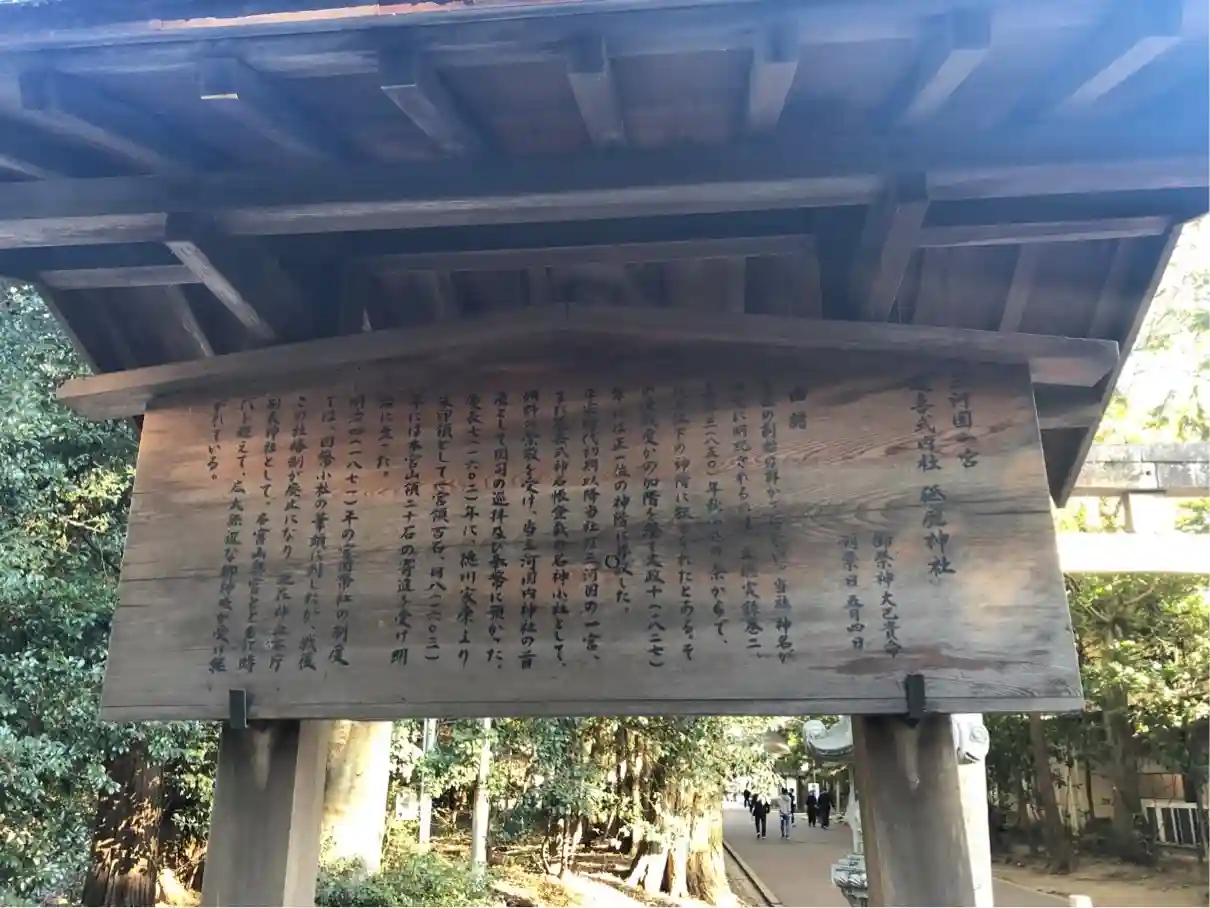 三河国一宮
延喜式内社 砥鹿神社
御祭神 大己貴命
例祭日 五月四日
由緒
当社神名が
に明記されるのは 文徳実録巻二、
三(八五〇)年秋
以下の神階に叙せられたとあるそ
の後幾度かの加階を経て文政十(一八二七)
年には正一位の神階に昇叙した。
平安時代初期以降当社は三河国の一宮、
また延喜式神名帳登載の名神小社として、
朝野の崇敬を受け、当三河国内神社の首
座として国司の巡拝及び奉幣に預かった。
慶長七(一六〇二)年に、徳川家康より
朱印領として宮領百石、同八(一六〇三)
年には本宮山領二十石の寄進を受け明
治に至った。
明治四(一八七一)年の官国幣社の制度
では、国幣小社の筆頭に列したが、戦後
この社格制が廃止になり
別表神社として、本宮山奥宮とともに時
代を超えて、広大無辺な御神威が受け継
がれている。